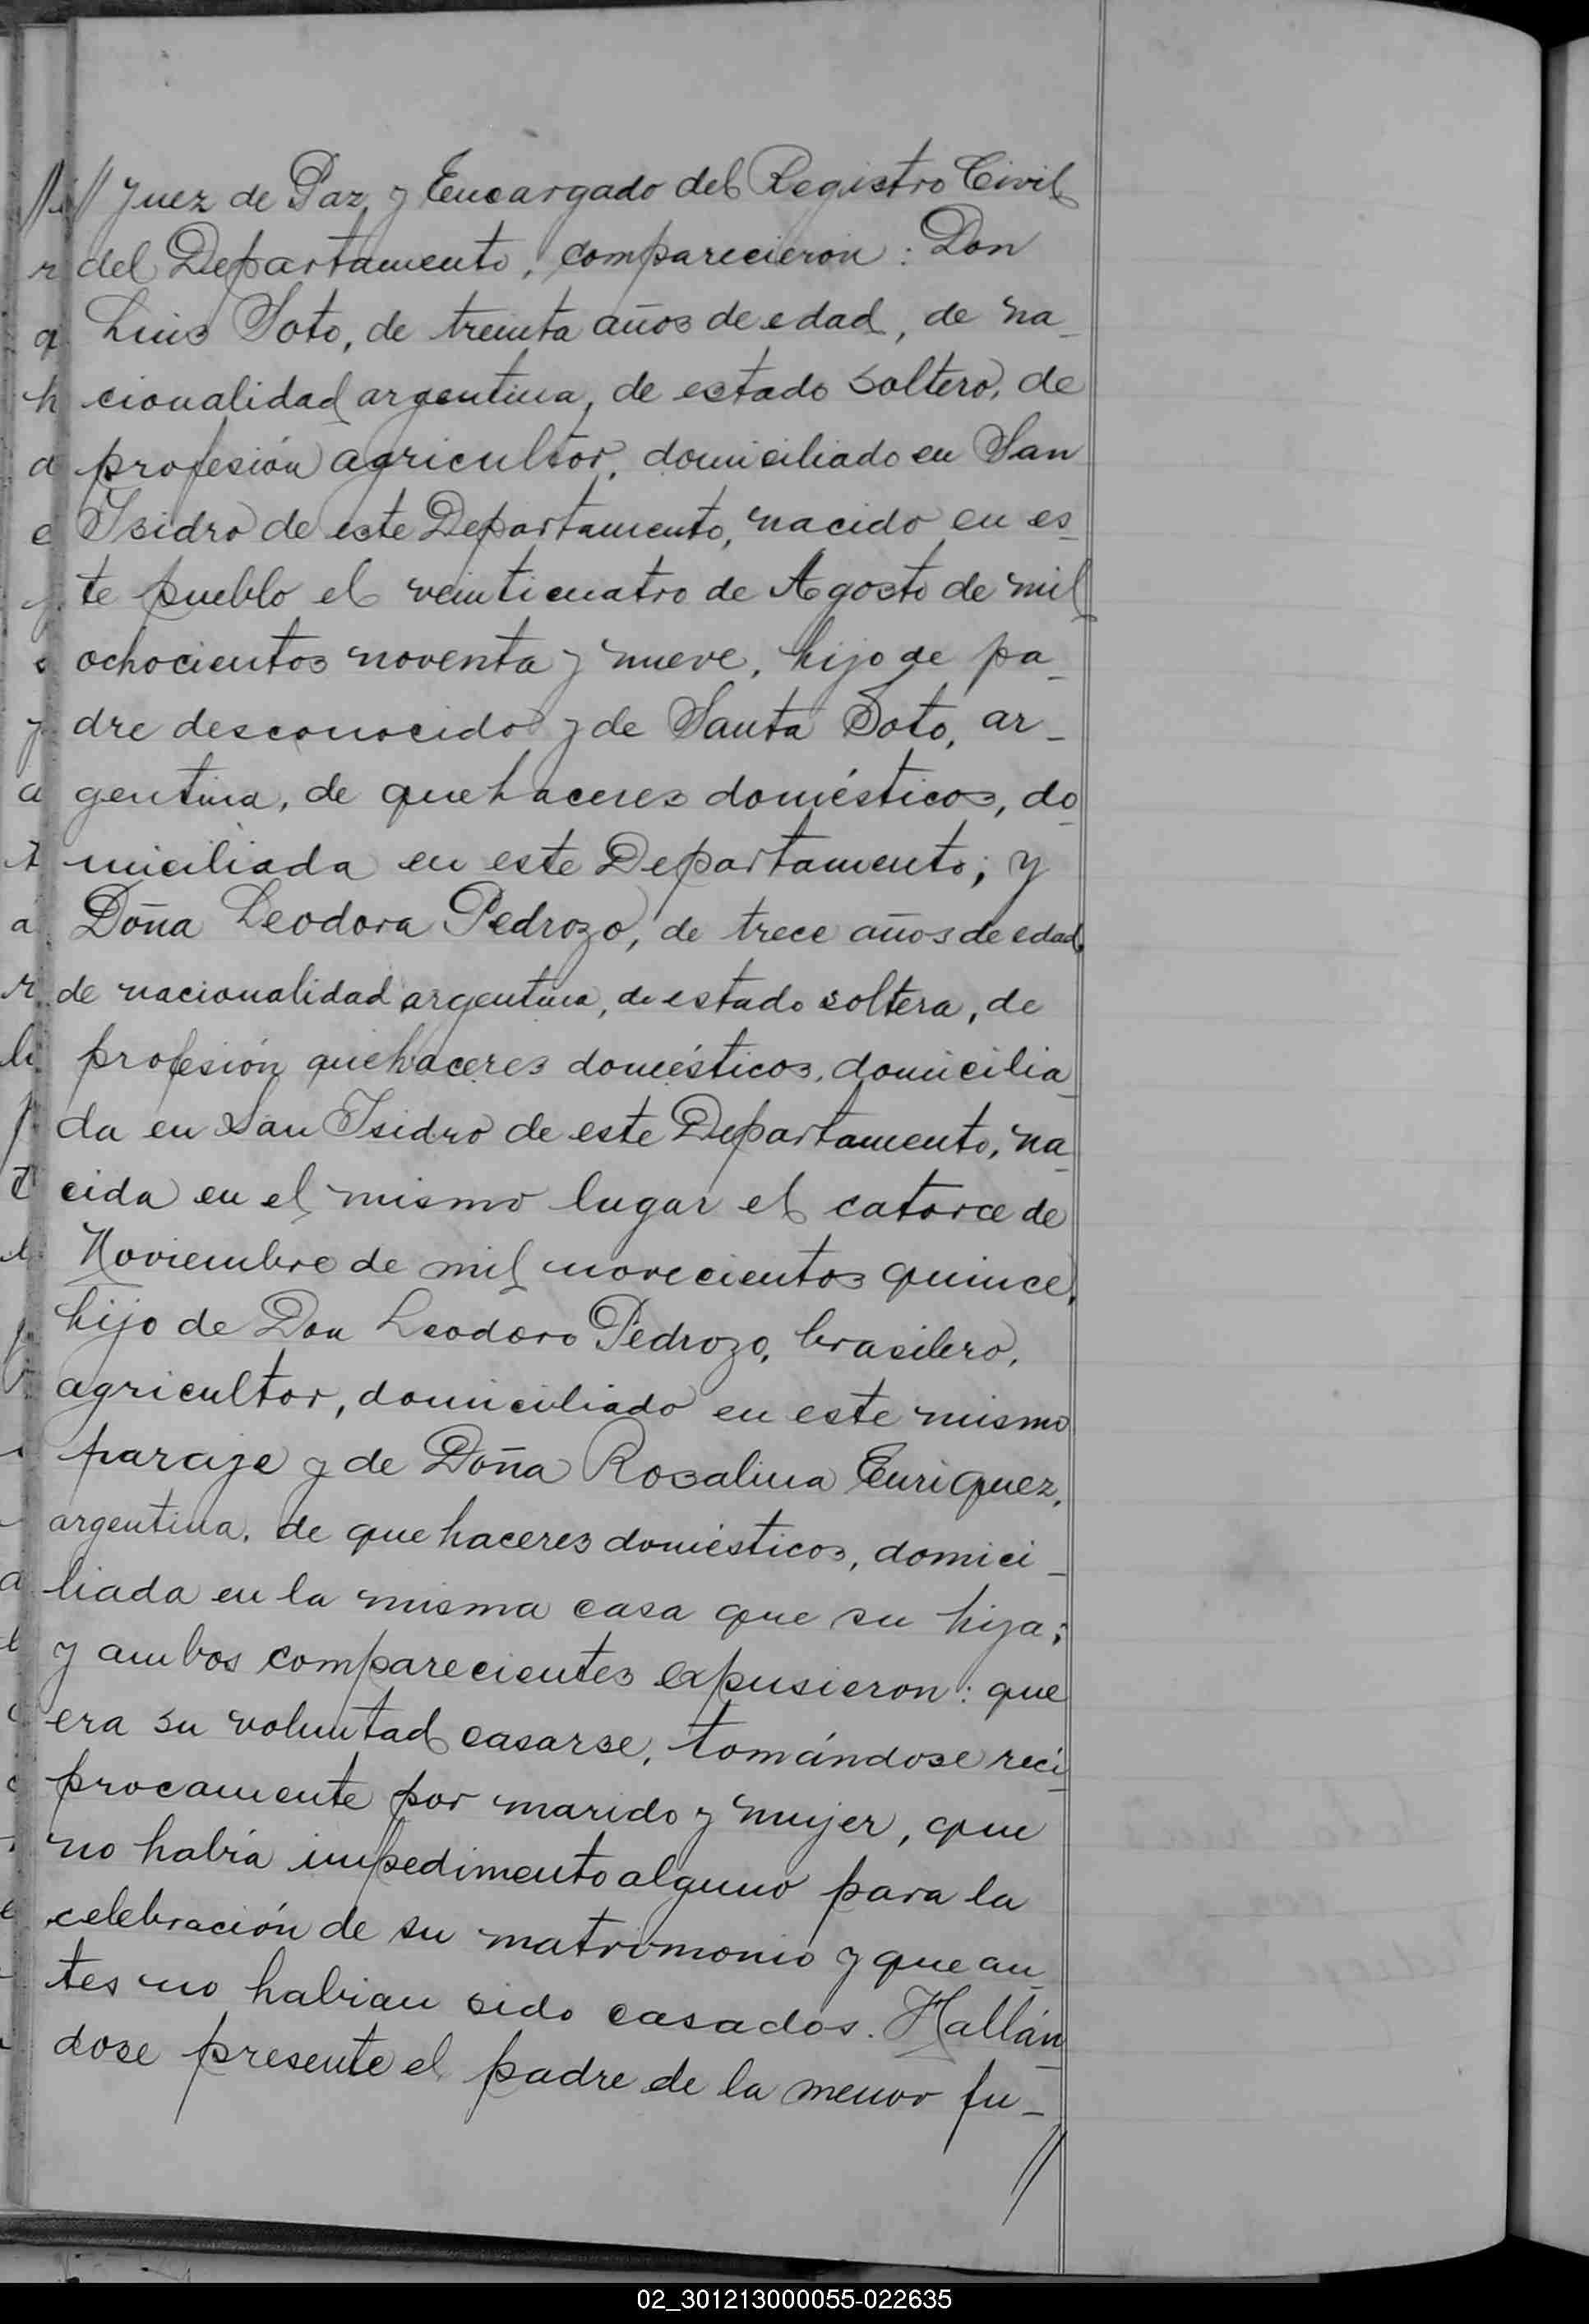 // Juez de Paz y Encargado del Registro Civil
del Departamento, comparecieron: Don
Luis Soto, de treinta años de edad, de na-
cionalidad argentina, de estado soltero, de
profesión agricultor, domiciliado en San
Isidro de este Departamento, nacido en es-
te pueblo el veinticuatro de Agosto de mil
ochocientos noventa y nueve, hijo de pa-
dre desconocido y de Santa Soto, ar-
gentina, de quehaceres domésticos, do-
miciliada en este Departamento; y
Doña Leodora Pedrozo, de trece años de edad,
de nacionalidad argentina, de estado soltera, de
profesión quehaceres domésticos, domicilia-
da en San Isidro de este Departamento, na-
cida en el mismo lugar el catorce de
Noviembre de mil novecientos quince,
hijo de Don Leodoro Pedrozo, brasilero,
agricultor, domiciliado en este mismo
paraje y de Doña Rosalina Enriquez,
argentina, de quehaceres domésticos, domici-
liada en la misma casa que su hija;
y ambos comparecientes expusieron: que
era su voluntad casarse, tomándose recí-
procamente por marido y mujer, que
no había impedimento alguno para la
celebración de su matrimonio y que an-
tes no habian sido casados. Hallán-
dose presente el padre de la menor fu-
//
02_301213000055-022635